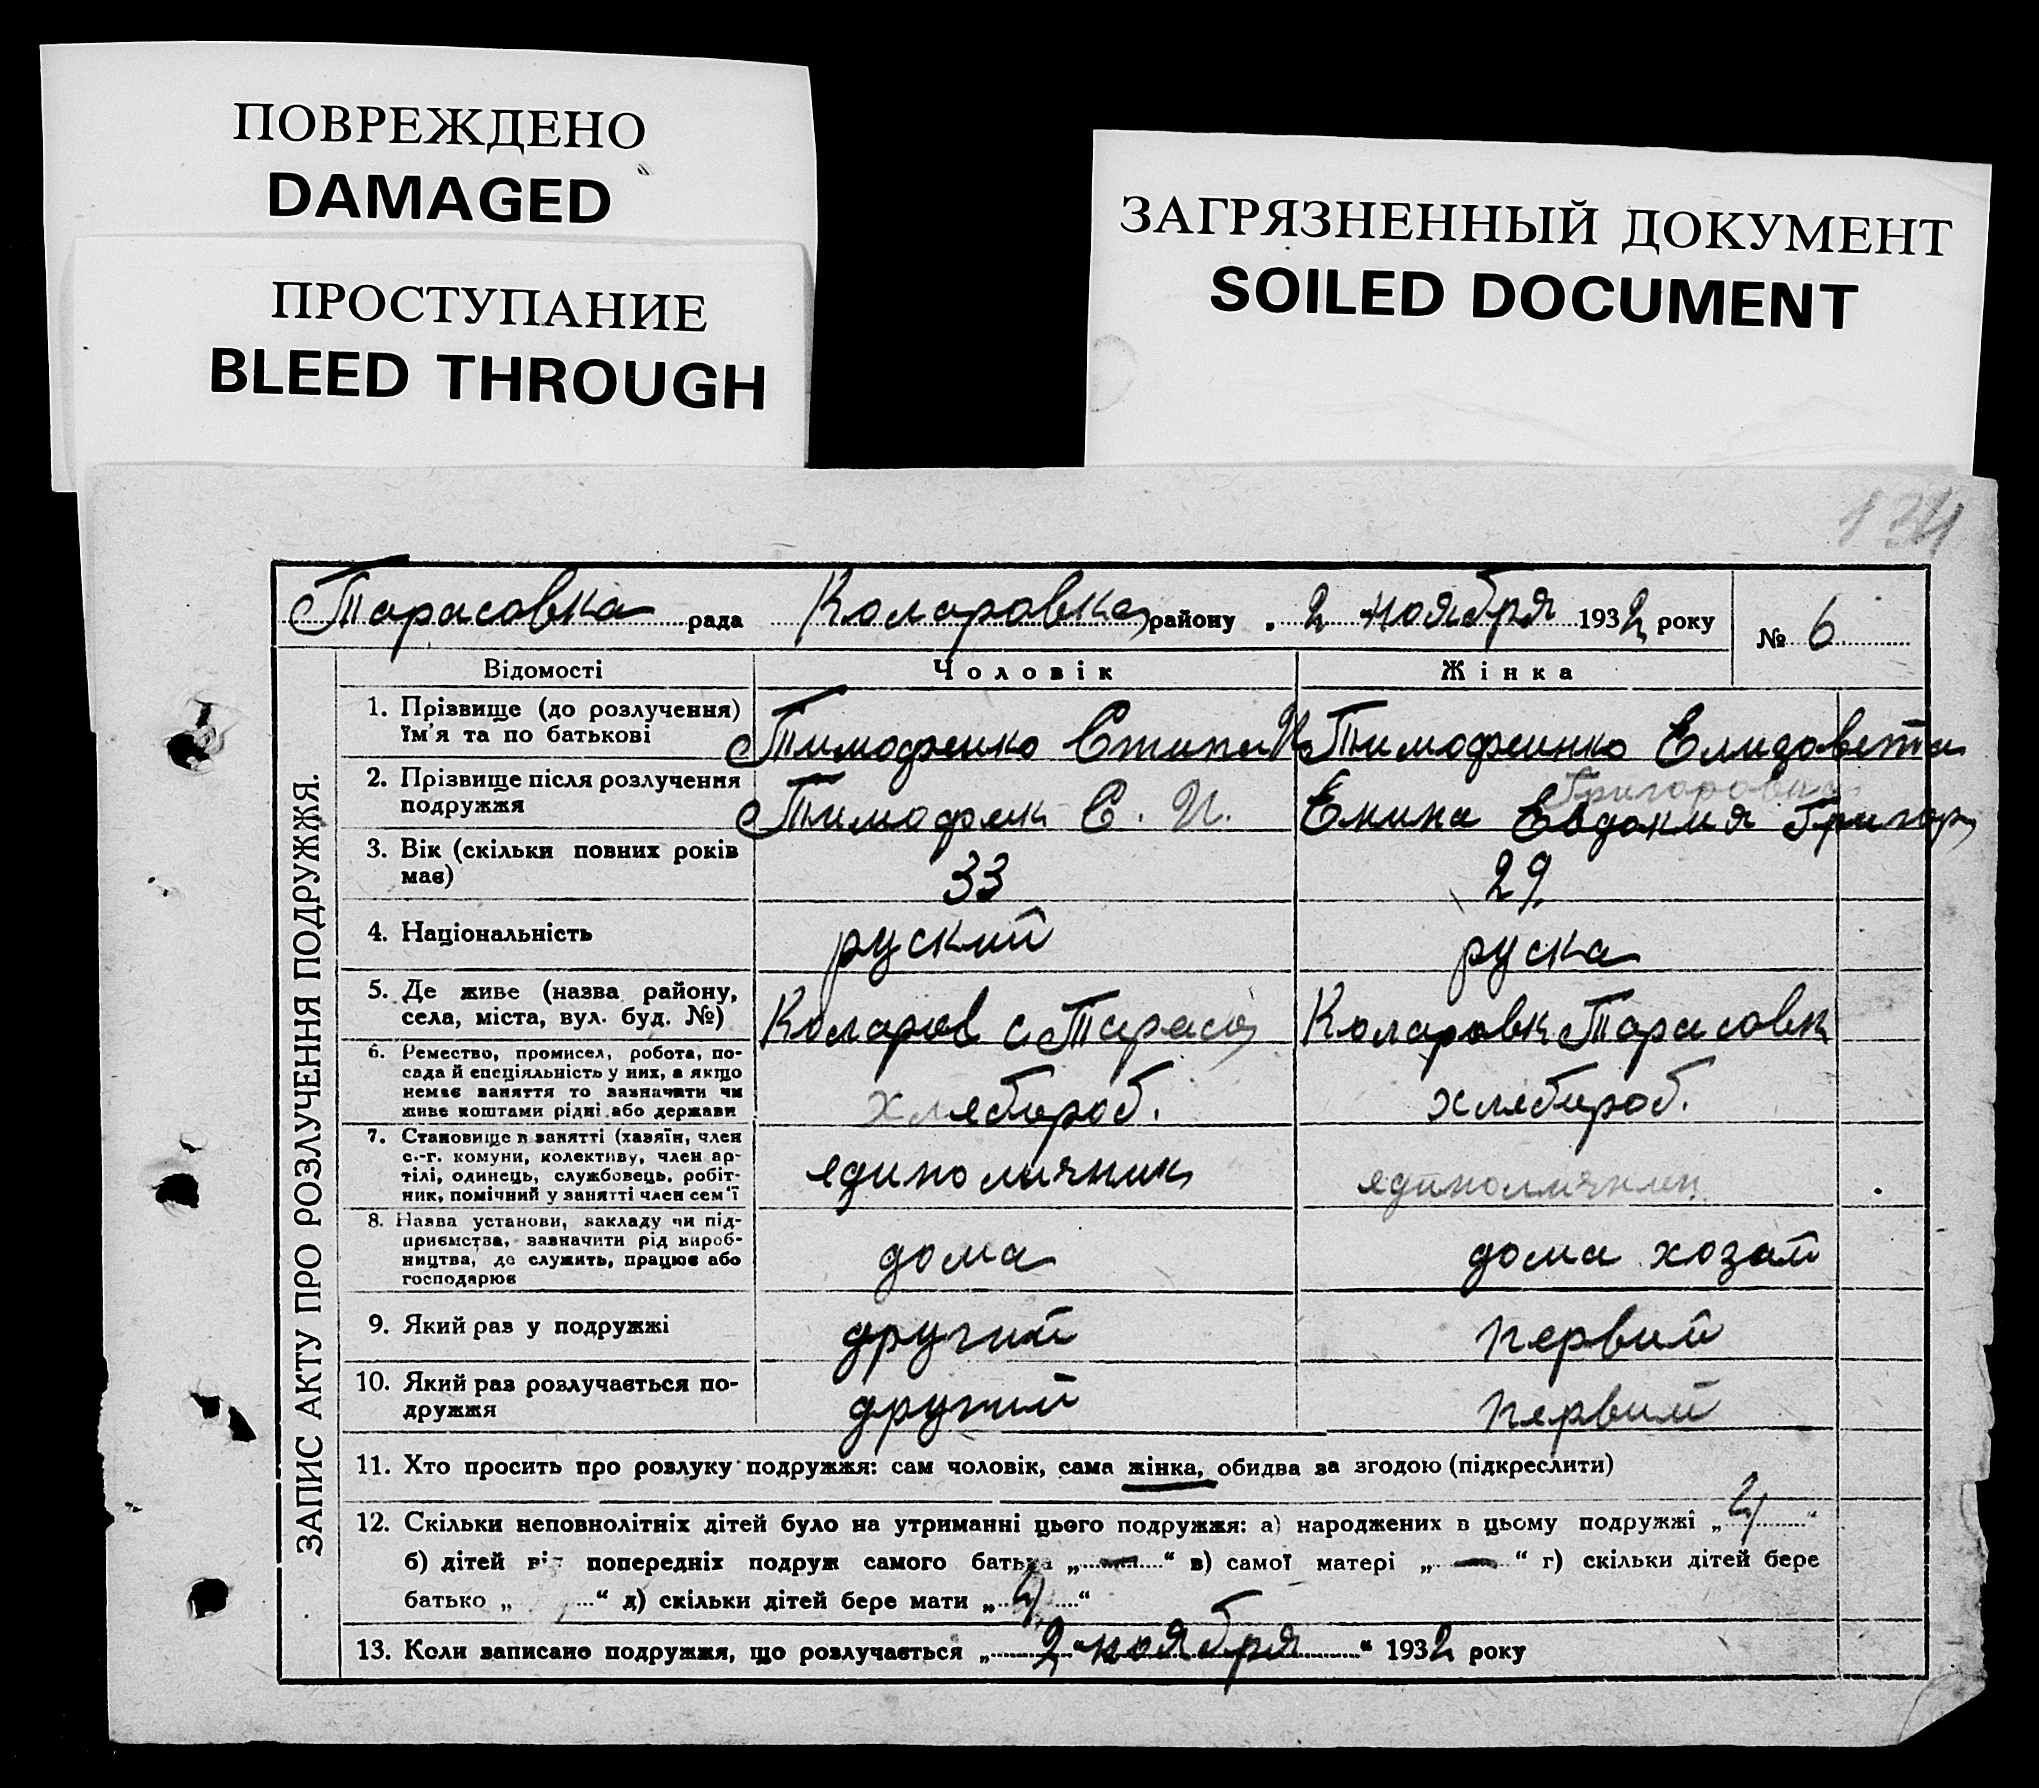 ПОВРЕЖДЕНО
DAMAGED
ПРОСТУПАНИЕ
BLEED THROUGH
ЗАГРЯЗНЕННЫЙ ДОКУМЕНТ
SOILED DOCUMENT
134
Тарасовка рада Коларовка району „ 2 ноября 1932 року № 6
ЗАПИС АКТУ ПРО РОЗЛУЧЕННЯ ПОДРУЖЖЯ.
Відомості Чоловік Жінка
1. Прізвище (до розлучення) їм'я та по батькові
Тимофенко Степан И Тимофеинко Елизовета
Григоровна
2. Прізвище після розлучення подружжя
Тимофенк С. И. Енина Евдокия Григор
3. Вік (скільки повних років має)
33 29
4. Національність руский руска
5. Де живе (назва району, села, міста, вул. буд. №)
Коларов с Тарасо Коларовк Тарасовк
6. Ремество, промисел, робота, по-
сада й спеціяльність у них, а якщо
немає заняття то зазначити чи
живе коштами рідні або держави
хлебороб. хлебороб.
7. Становище в занятті (хазяїн, член
с.-г. комуни, колективу, член ар-
тілі, одинець, службовець, робіт-
ник, помічний у занятті член сем'ї
единоличник единоличник
8. Назва установи, закладу чи під-
приємства, зазначити рід вироб-
ництва, де служить, працює або
господарює
дома дома хозай
9. Який раз у подружжі другий первий
10. Який раз розлучається по-
дружжя
другий первий
11. Хто просить про розлуку подружжя: сам чоловік, сама жінка, обидва за згодою (підкреслити)
12. Скільки неповнолітніх дітей було на утриманні цього подружжя: а) народжених в цьому подружжі „ 4 “
б) дітей від попередніх подруж самого батька „ — “ в) самої матері „ — “ г) скільки дітей бере
батько „ “ д) скільки дітей бере мати „ 4 “
13. Коли записано подружжя, що розлучається „ 2 ноября “ 1932 року